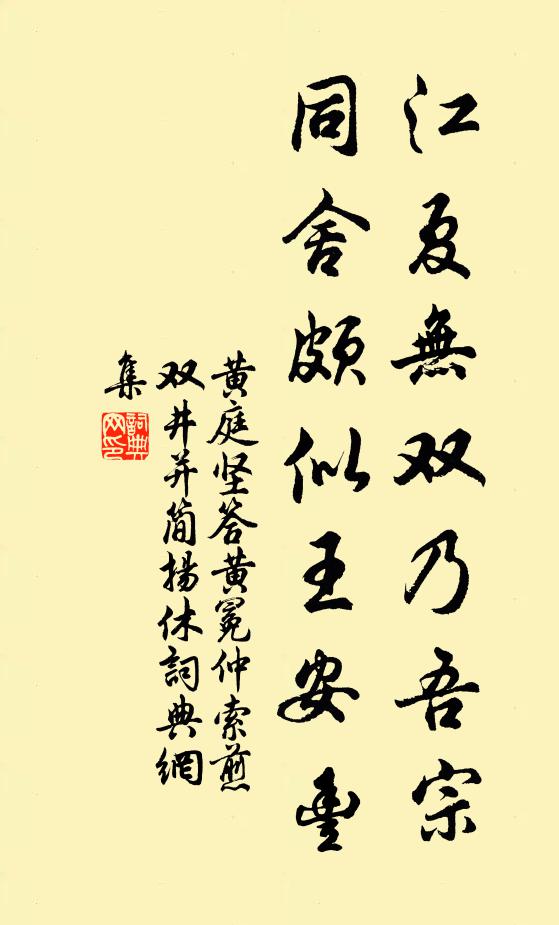 江夏無双乃吾宗
同舍頗似王安豐
黄庭坚答黄冕仲索煎
双井并简揚休詞典網
集
詞典
网印